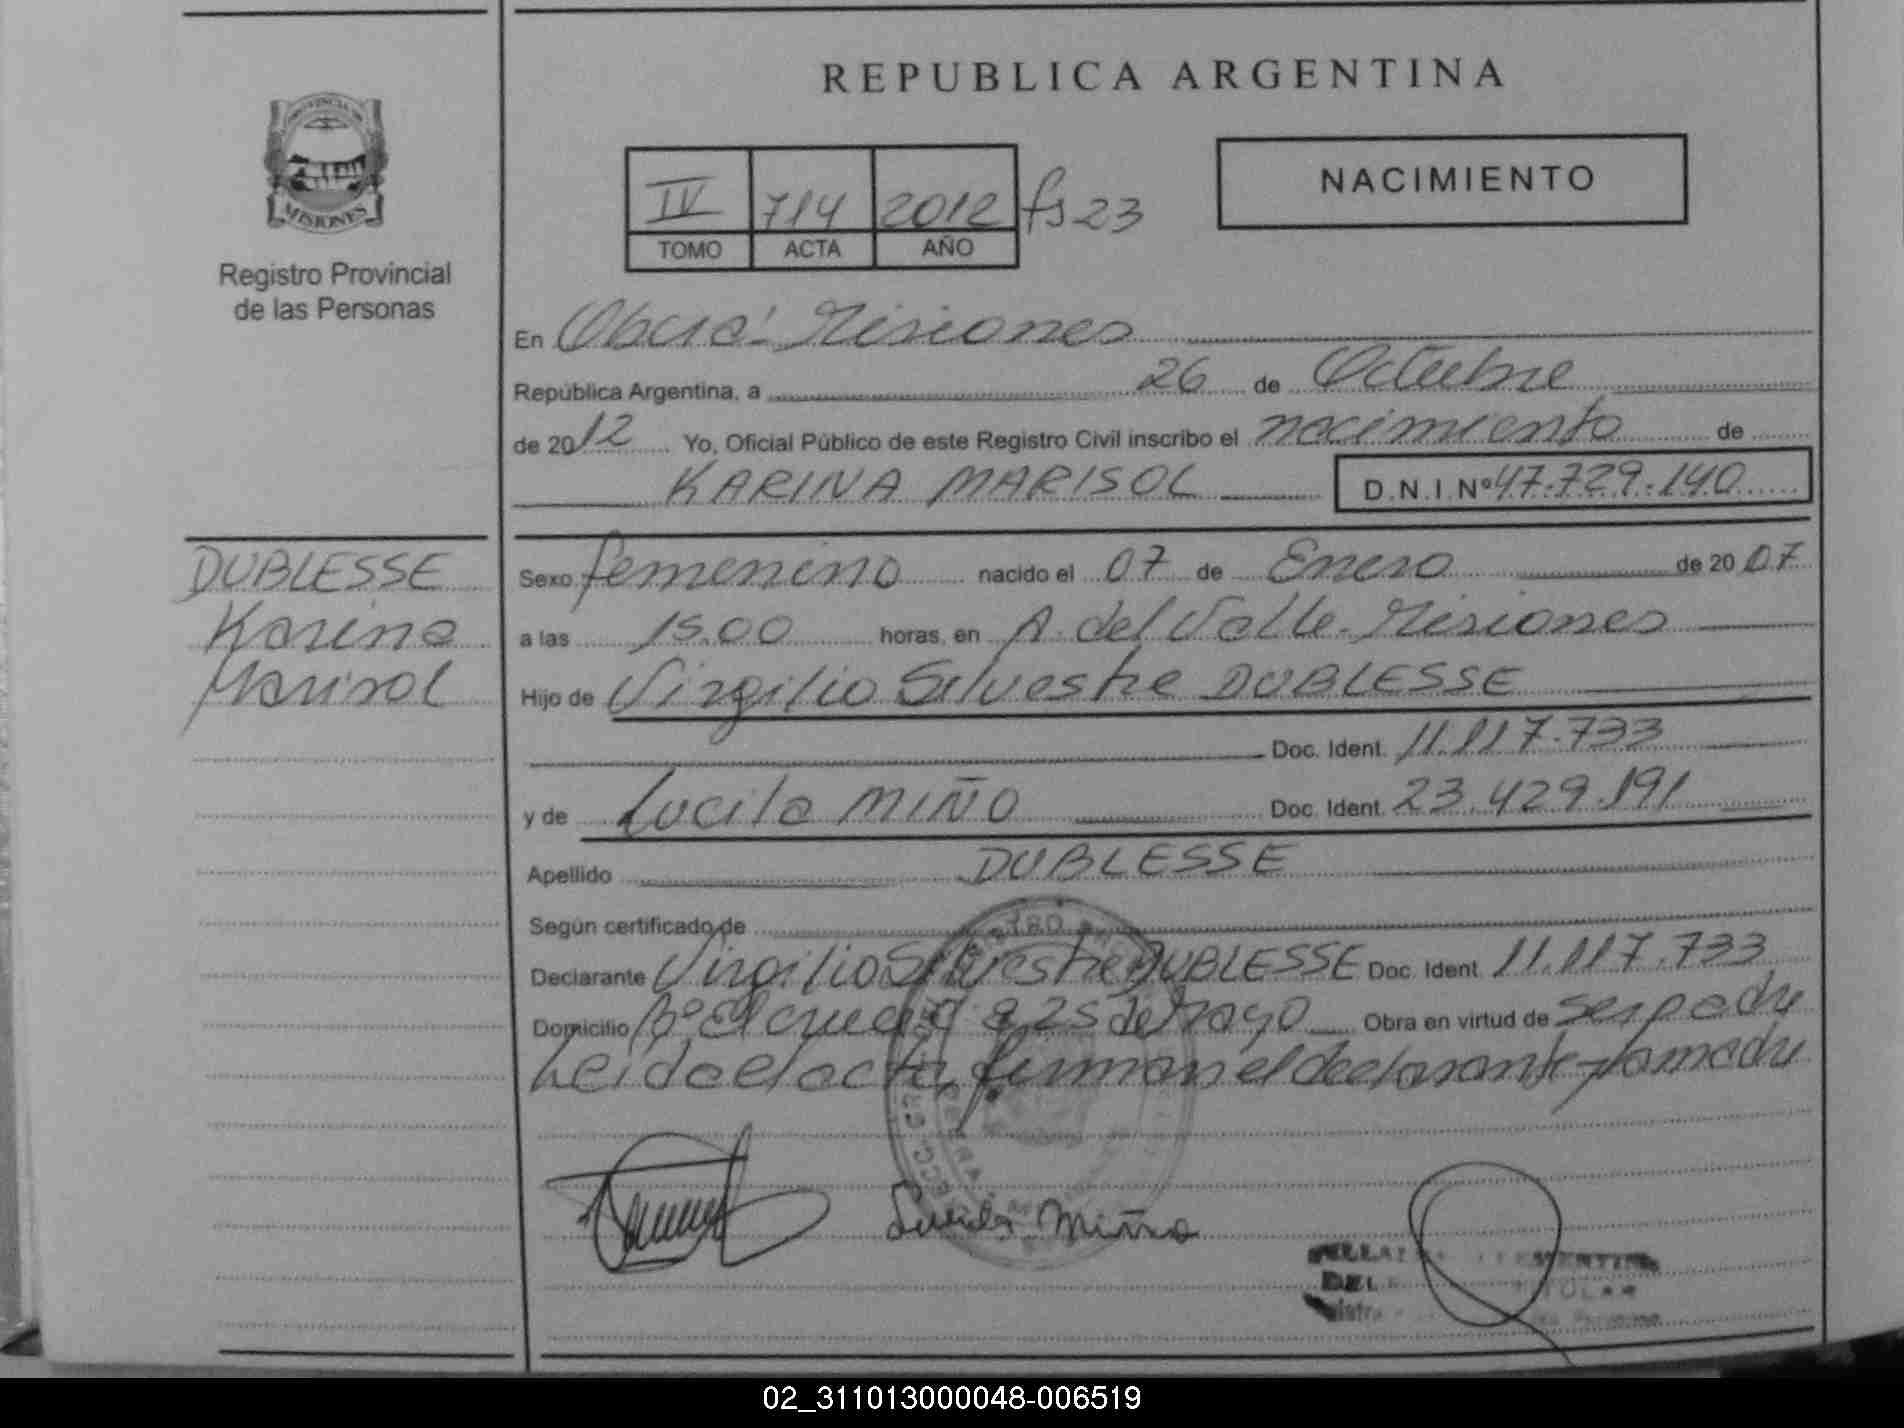 REPUBLICA ARGENTINA
PROVINCIA DE
MISIONES
Registro Provincial
de las Personas
IV 714 2012 fs 23
TOMO ACTA AÑO
NACIMIENTO
En Oberá - Misiones
República Argentina, a 26 de Octubre
de 2012 Yo, Oficial Público de este Registro Civil inscribo el nacimiento de
KARINA MARISOL D.N.I. Nº 47.729.140
DUBLESSE
Karina
Marisol
Sexo femenino nacido el 07 de Enero de 2007
a las 15.00 horas, en A. del Valle - Misiones
Hijo de Virgilio Silvestre DUBLESSE
Doc. Ident. 11.117.733
y de Lucila MIÑO Doc. Ident. 23.429.191
Apellido DUBLESSE
Según certificado de
Declarante Virgilio Silvestre DUBLESSE Doc. Ident. 11.117.733
Domicilio Bº El 25 de Mayo Obra en virtud de ser padre
Leída el acta, firman el declarante y la madre
Lucila Miño
02_311013000048-006519